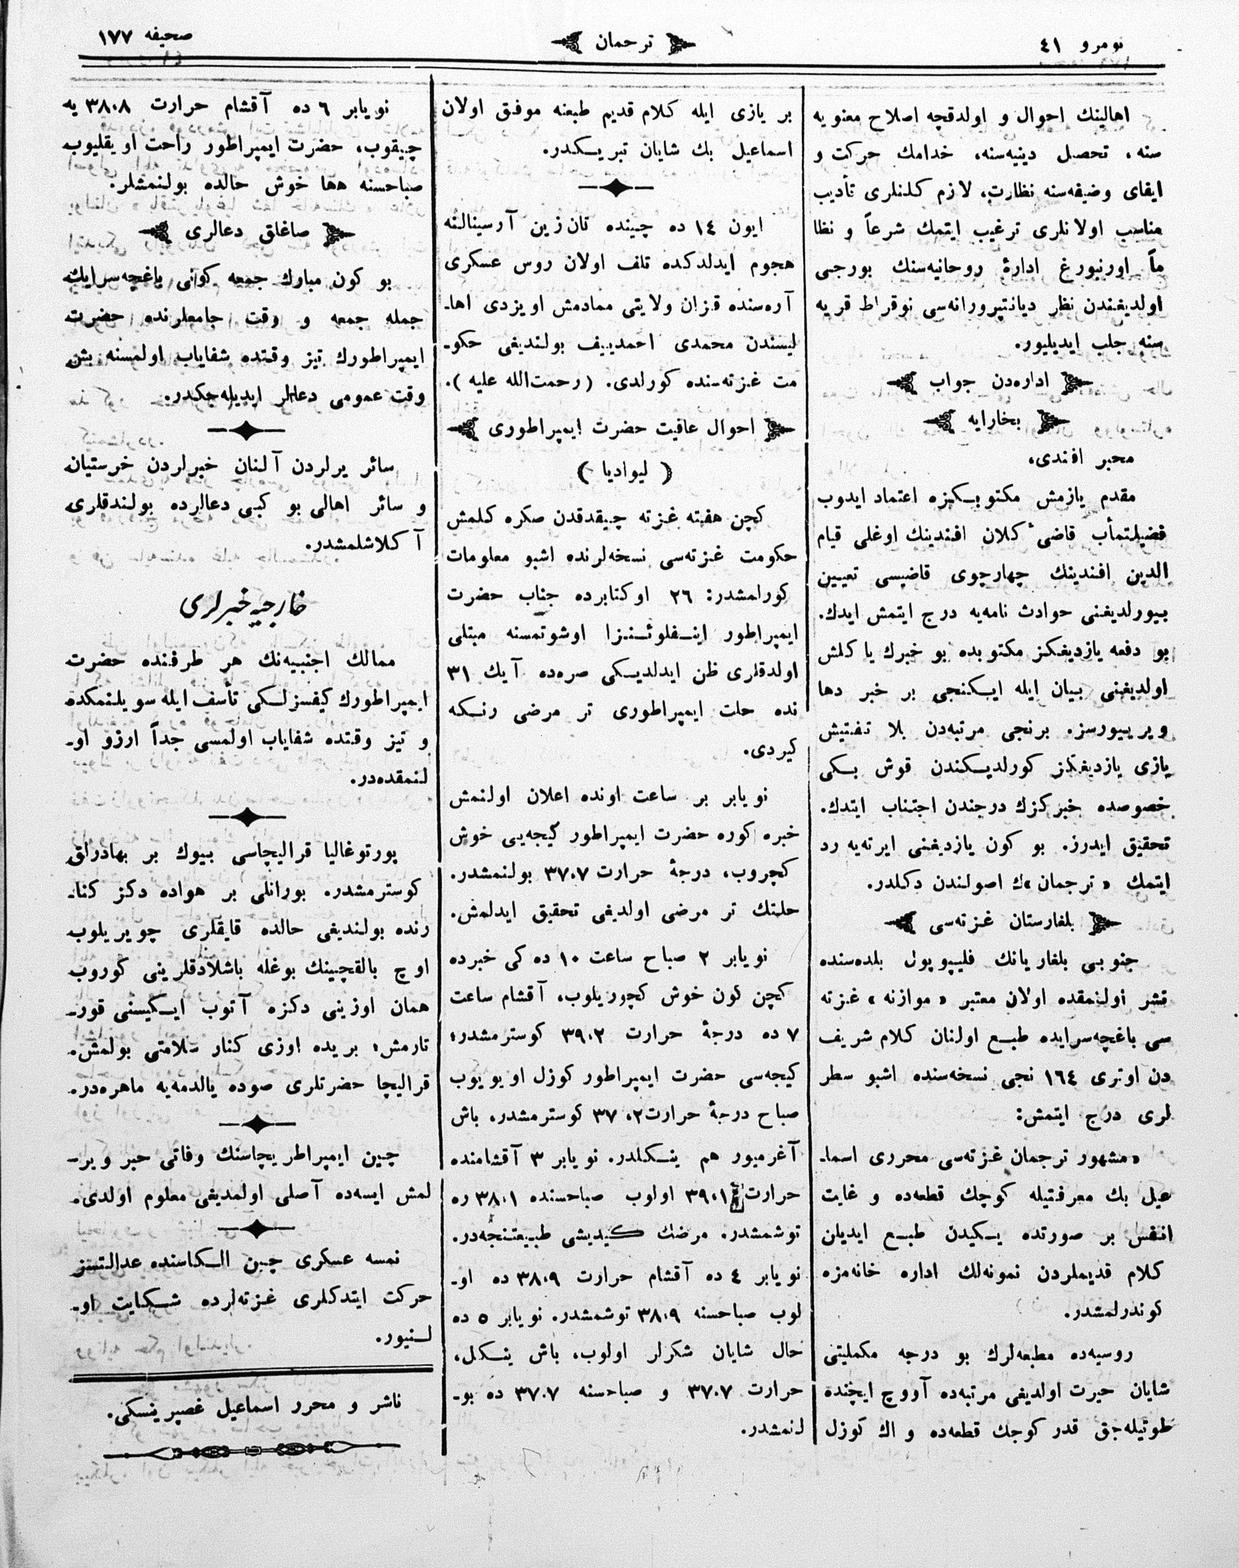 نومرو ٤١
ترجمان
صحیفه ١٧٧
اهالینك احوال و اولدقچه اصلاح معنویه
سنه، تحصل دینیه‌سنه، خدامك حركت و
ایفای وضیفه‌سنه نظارت، لازم كلنلری تأدیب
مناسب اولانلری ترغیب ایتمك شرعاً و نظا
ماً اورنبورغ ادارۀ روحانیه‌سنك بورجی
اولدیغندن نظر دیانتپرورانه‌سی نوقراط قریه
سنه جلب ایدیلیور.
اداره‌دن جواب
بخارایه
محبر افندی،
مقدم یازمش مكتوبـكزه اعتماد ایدوب
فضیلتمأب قاضئ كلان افندینك اوغلی قیام
الدین افندینك چهارجوی قاضیسی تعیین
بیورلدیغنی حوادث نامه‌یه درج ایتمش ایدك.
بو دفعه یازدیغكز مكتوبده بو خبرك یاكلش
اولدیغنی بیان ایله ایـكنجی بر خبر دها
ویرییورسز. برنجی مرتبه‌دن بلا تفتیش
یازی یازدیغكز كورلدیـكندن قوش بـكی
خصوصده خبركزك درجندن اجتناب ایتدك.
تحقیق ایدرز. بو كون یازدیغنی ایرته‌یه رد
ایتمك « ترجمان »ك اصولندن دكلدر.
بلغارستان غزته‌سی
جنوبی بلغاریانك فلیپوپول بلده‌سنده
نشر اولنمقده اولان معتبر « موازنه » غزته
سی باغچه‌سرایده طبـع اولنان كلام شریف
دن اوتری ١٦٤ نجی نسخه‌سنده اشبو سطر
لری درج ایتمش:
« مشهور ترجمان غزته‌سی محرری اسما-
عیل بك معرفتیله كوچك قطعه‌ده و غایت
انفس بر صورتده یـكیدن طبـع ایدیلن
كلام قدیملردن نمونه‌لك اداره خانه‌مزه
كوندرلمشدر.
روسیه‌ده مطبعه‌لرك بو درجه مكملیتی
شایان حیرت اولدیغی مرتبه‌ده آووچ ایچنده
طوتیله‌جق قدر كوجك قطعه‌ده و اك كوزل
بر یازی ایله كلام قدیم طبعنه موفق اولان
اسماعیل بك شایان تبریـكدر.
ایون ١٤ ده چینده تان‌زین آرسینالنه
هجوم ایدلدكده تلف اولان روس عسكری
آره‌سنده قزان ولایتی ممادمش اویزدی اها-
لیسندن محمدی احمدییف بولندیغی حكو-
مت غزته‌سنده كورلدی. (رحمت‌الله علیه).
احوال عاقیت حضرت ایمپراطوری
( لیوادیا )
كچن هفته غزته چیقدقدن صكره كلمش
حكومت غزته‌سی نسخه‌لرنده اشبو معلومات
كورلمشدر: ٢٦ اوكتابرده جناب حضرت
ایمپراطور اینـفلوئـنزا اوشوتمسنه مبتلی
اولدقلری ظن ایدلدیـكی صره‌ده آیك ٣١
نده حلت ایمپراطوری تر مرضی رنـكه
كیردی.
نویابر بر ساعت اونده اعلان اولنمش
خبره كوره حضرت ایمپراطور كیجه‌یی خوش
كچروب، درجۀ حرارت ٣٧،٧ بولنمشدر.
حلتك تر مرضی اولدیغی تحقیق ایدلمش.
نویابر ٢ صباح ساعت ١٠ ده كی خبرده
كچن كون خوش كچوریلوب، آقشام ساعت
٧ ده درجۀ حرارت ٣٩،٢ كوسترمشدر؛
كیجه‌سی حضرت ایمپراطور كوزل اویویوب
صباح درجۀ حرارت ٣٧،٢ كوسترمشدر، باش
آغرمیور هم یـڭـلدر. نویابر ٣ آقشامنده
حرارت ٣٩،١ اولوب صباحسنده ٣٨،١ ره
توشمشدر. مرضك كیدیشی طبیعتنجه‌در.
نویابر ٤ ده آقشام حرارت ٣٨،٩ ده او-
لوب صباحسنه ٣٨،٩ توشمشدر. نویابر ٥ ده
حال شایان شكرلر اولوب، باش یـڭـل،
حرارت ٣٧،٧ و صباحسنه ٣٧،٧ ده بو-
لنمشدر.
نویابر ٦ ده آقشام حرارت ٣٨،٨ یه
چیقوب، حضرت ایمپراطور راحت اویقلیوب
صباحسنه دها خوش حالده بولنمشلر.
صاغلق دعالری
بو كون مبارك جمعه كونی باغچه‌سرایك
جمله جمعه و وقت جامعلرنده حضرت
ایمپراطورك تیز وقتده شفایاب اولمسنه بش
وقت عمومی دعالر ایدیله‌جكدر.
سائر یرلردن آلنان خبرلردن خرستیان
و سائر اهالی بو كبی دعالرده بولندقلری
آكلاشلمشدر.
خارجیه خبرلری
ممالك اجنبیه‌نك هر طرفنده حضرت
ایمپراطورك كیفسزلـكی تأسف ایله سویلنمكده
و تیز وقتده شفایاب اولمسی جداً ارزو او-
لنمقده‌در.
پورتوغالیا قرالیچاسی بیوك بر بهادرلق
كوسترمشدر. بورانلی بر هواده دكز كنا-
رنده بولندیغی حالده قایقلری چویریلوب
اوچ بالقچینك بوغله باشلادقلرینی كوروب
همان اوزینی دكزه آتوب ایـكیسنی قور-
تارمش؛ بریده اوزی كنار سلامتی بولمش.
قرالیچا حضرتلری صوده یالدمه‌یه ماهره‌در.
چین ایمپراطریچاسنك وفاتی حبر ویر-
لمش ایسه‌ده آصلی اولمدیغی معلوم اولدی.
نمسه عسكری چین الـكاسنده عدالتسز
حركت ایتدكلری غزته‌لرده شـكایت او-
لـنیور.
ناشر و محرر اسماعیل غصپرینسكی.